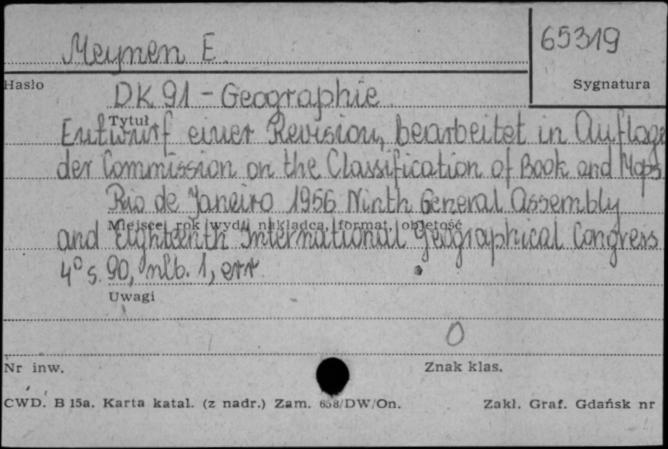 Meynen E. 65319
Hasło Sygnatura
DK 91 - Geographie
Tytuł
Entwurf einer Revision, bearbeitet in Auflage
der Commission on the Classification of Book and Maps
Rio de Janeiro 1956 Ninth General Assembly
Miejsce i rok wyd., nakładca, format, objętość
and Eighteenth International Geographical Congress
4° s. 90, nlb. 1, err
Uwagi
0
Nr inw. Znak klas.
CWD. B 15a. Karta katal. (z nadr.) Zam. 658/DW/On. Zakł. Graf. Gdańsk nr